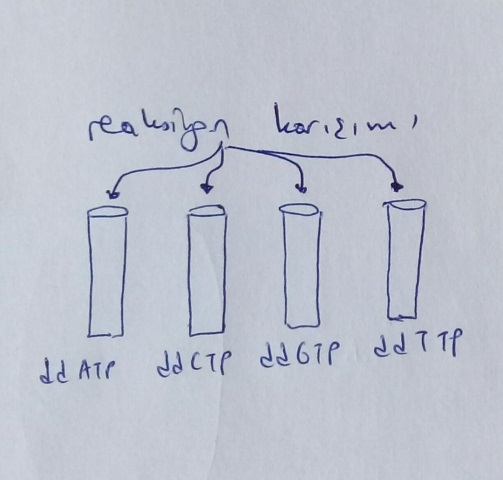 reaksiyon karışımı
ddATP ddCTP ddGTP ddTTP